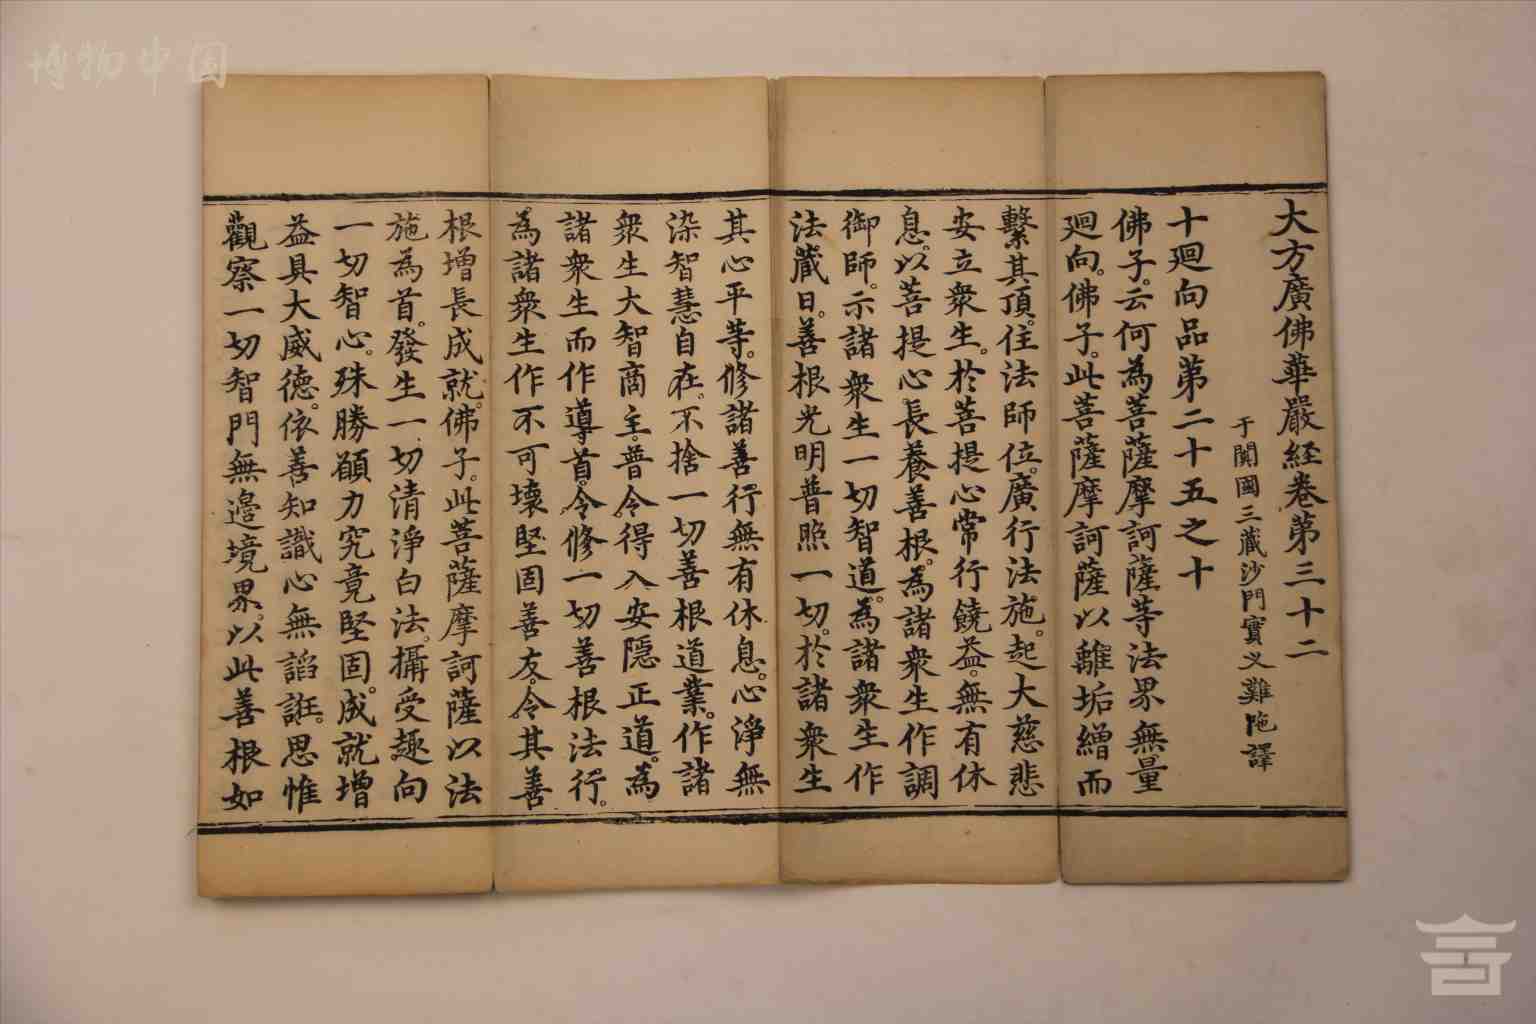 博物中国
大方廣佛華嚴経卷第三十二
于闐國三藏沙門實义難陁譯
十廻向品第二十五之十
佛子。云何為菩薩摩訶薩等法界無量
廻向。佛子。此菩薩摩訶薩以離垢繒而
繫其頂。住法師位。廣行法施。起大慈悲
安立衆生。於菩提心常行饒益。無有休
息。以菩提心。長養善根。為諸衆生作調
御師。示諸衆生一切智道。為諸衆生作
法藏日。善根光明普照一切。於諸衆生
其心平等。修諸善行無有休息。心淨無
染智慧自在。不捨一切善根道業。作諸
衆生大智商主。普令得入安隱正道。為
諸衆生而作導首。令修一切善根法行。
為諸衆生作不可壞堅固善友。令其善
根增長成就。佛子。此菩薩摩訶薩以法
施為首。發生一切清淨白法。攝受趣向
一切智心。殊勝願力究竟堅固。成就增
益具大威德。依善知識心無諂誑。思惟
觀察一切智門無邊境界。以此善根如